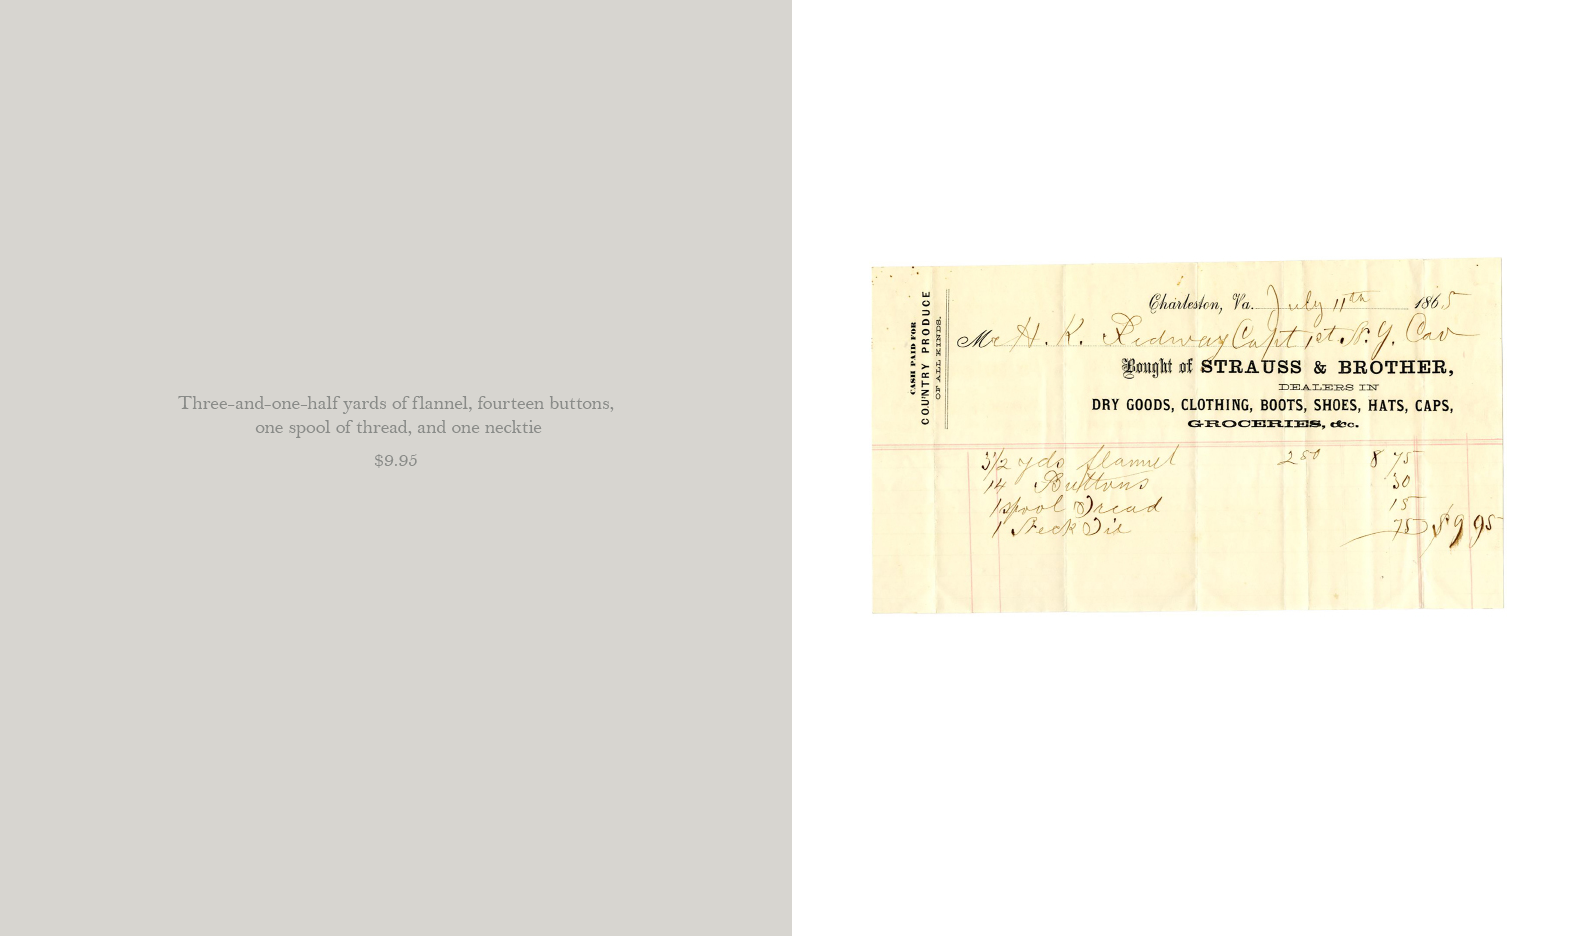 Three-and-one-half yards of flannel, fourteen buttons,
one spool of thread, and one necktie
$9.95
CASH PAID FOR
COUNTRY PRODUCE
OF ALL KINDS.
Charleston, Va. July 11th 1865
Mr H. K. Redway Capt 1st N.Y. Cav
Bought of STRAUSS & BROTHER,
DEALERS IN
DRY GOODS, CLOTHING, BOOTS, SHOES, HATS, CAPS,
GROCERIES, &c.
3 1/2 yds flannel 2 50 8 75
14 Buttons 30
1 spool Tread 15
1 Neck Tie 75 $9 95